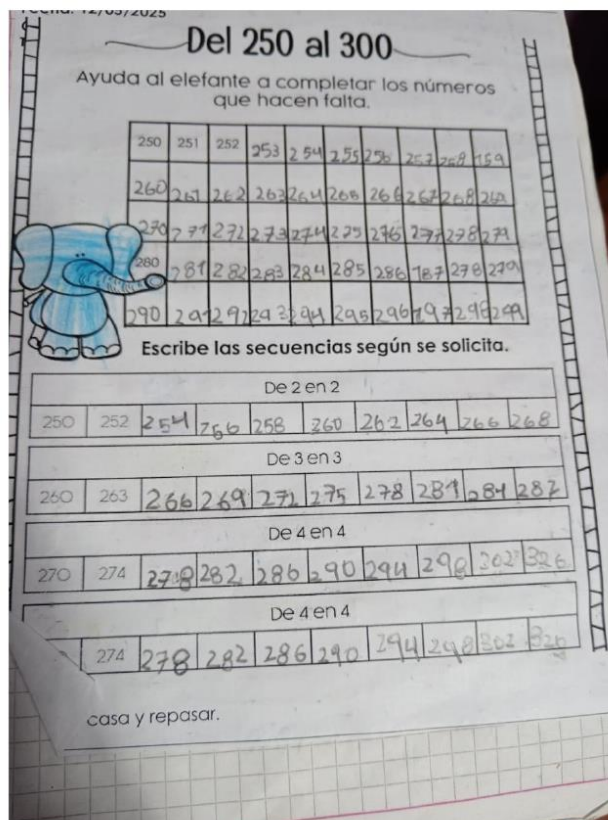 Fecha: 12/03/2025
Del 250 al 300
Ayuda al elefante a completar los números
que hacen falta.
250 251 252 253 254 255 256 257 258 159
260 261 262 263 264 265 266 267 268 269
270 271 272 273 274 275 276 277 278 279
280 281 282 283 284 285 286 187 278 279
290 291 292 293 294 295 296 197 298 299
Escribe las secuencias según se solicita.
De 2 en 2
250 252 254 266 258 360 262 264 266 268
De 3 en 3
260 263 266 269 272 275 278 281 284 287
De 4 en 4
270 274 278 282 286 290 294 298 302 326
De 4 en 4
274 278 282 286 290 294 298 302 326
casa y repasar.